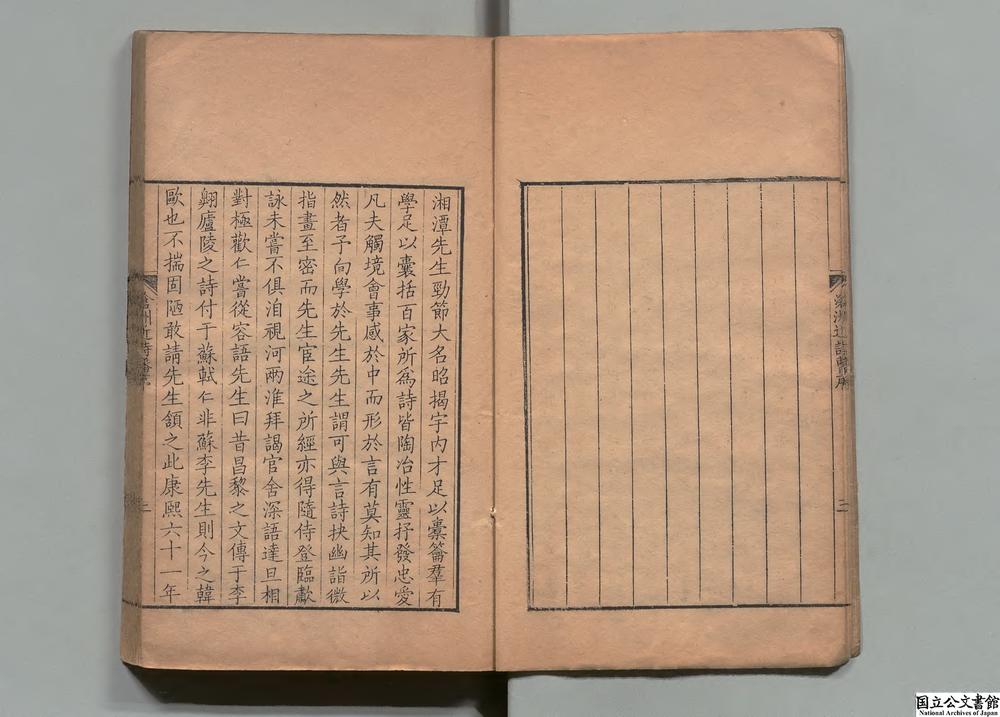 湘潭先生勁節大名昭揭宇內才足以橐籥羣有
學足以囊括百家所爲詩皆陶冶性靈抒發忠愛
凡夫觸境會事感於中而形於言有莫知其所以
然者予向學於先生先生謂可與言詩抉幽詣微
指畫至密而先生宦途之所經亦得隨侍登臨歗
詠未嘗不俱洎視河兩淮拜謁官舍深語達旦相
對極歡仁嘗從容語先生曰昔昌黎之文傳于李
翺廬陵之詩付于蘇軾仁非蘇李先生則今之韓
歐也不揣固陋敢請先生頷之此康熙六十一年
国立公文書館
National Archives of Japan